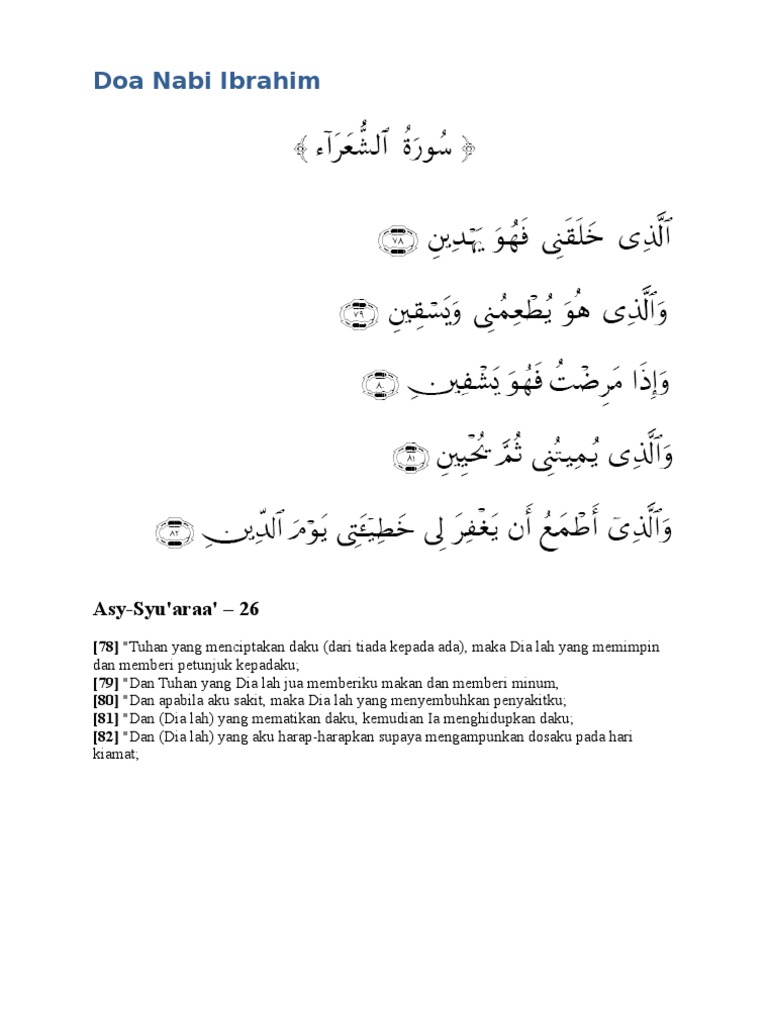 Doa Nabi Ibrahim
﴿ سُورَةُ ٱلشُّعَرَآء ﴾
ٱلَّذِى خَلَقَنِى فَهُوَ يَہۡدِينِ ٧٨
وَٱلَّذِى هُوَ يُطۡعِمُنِى وَيَسۡقِينِ ٧٩
وَإِذَا مَرِضۡتُ فَهُوَ يَشۡفِينِ ٨٠
وَٱلَّذِى يُمِيتُنِى ثُمَّ يُحۡيِينِ ٨١
وَٱلَّذِىٓ أَطۡمَعُ أَن يَغۡفِرَ لِى خَطِيٓـَٔتِى يَوۡمَ ٱلدِّينِ ٨٢
Asy-Syu'araa' – 26
[78] "Tuhan yang menciptakan daku (dari tiada kepada ada), maka Dia lah yang memimpin
dan memberi petunjuk kepadaku;
[79] "Dan Tuhan yang Dia lah jua memberiku makan dan memberi minum,
[80] "Dan apabila aku sakit, maka Dia lah yang menyembuhkan penyakitku;
[81] "Dan (Dia lah) yang mematikan daku, kemudian Ia menghidupkan daku;
[82] "Dan (Dia lah) yang aku harap-harapkan supaya mengampunkan dosaku pada hari
kiamat;